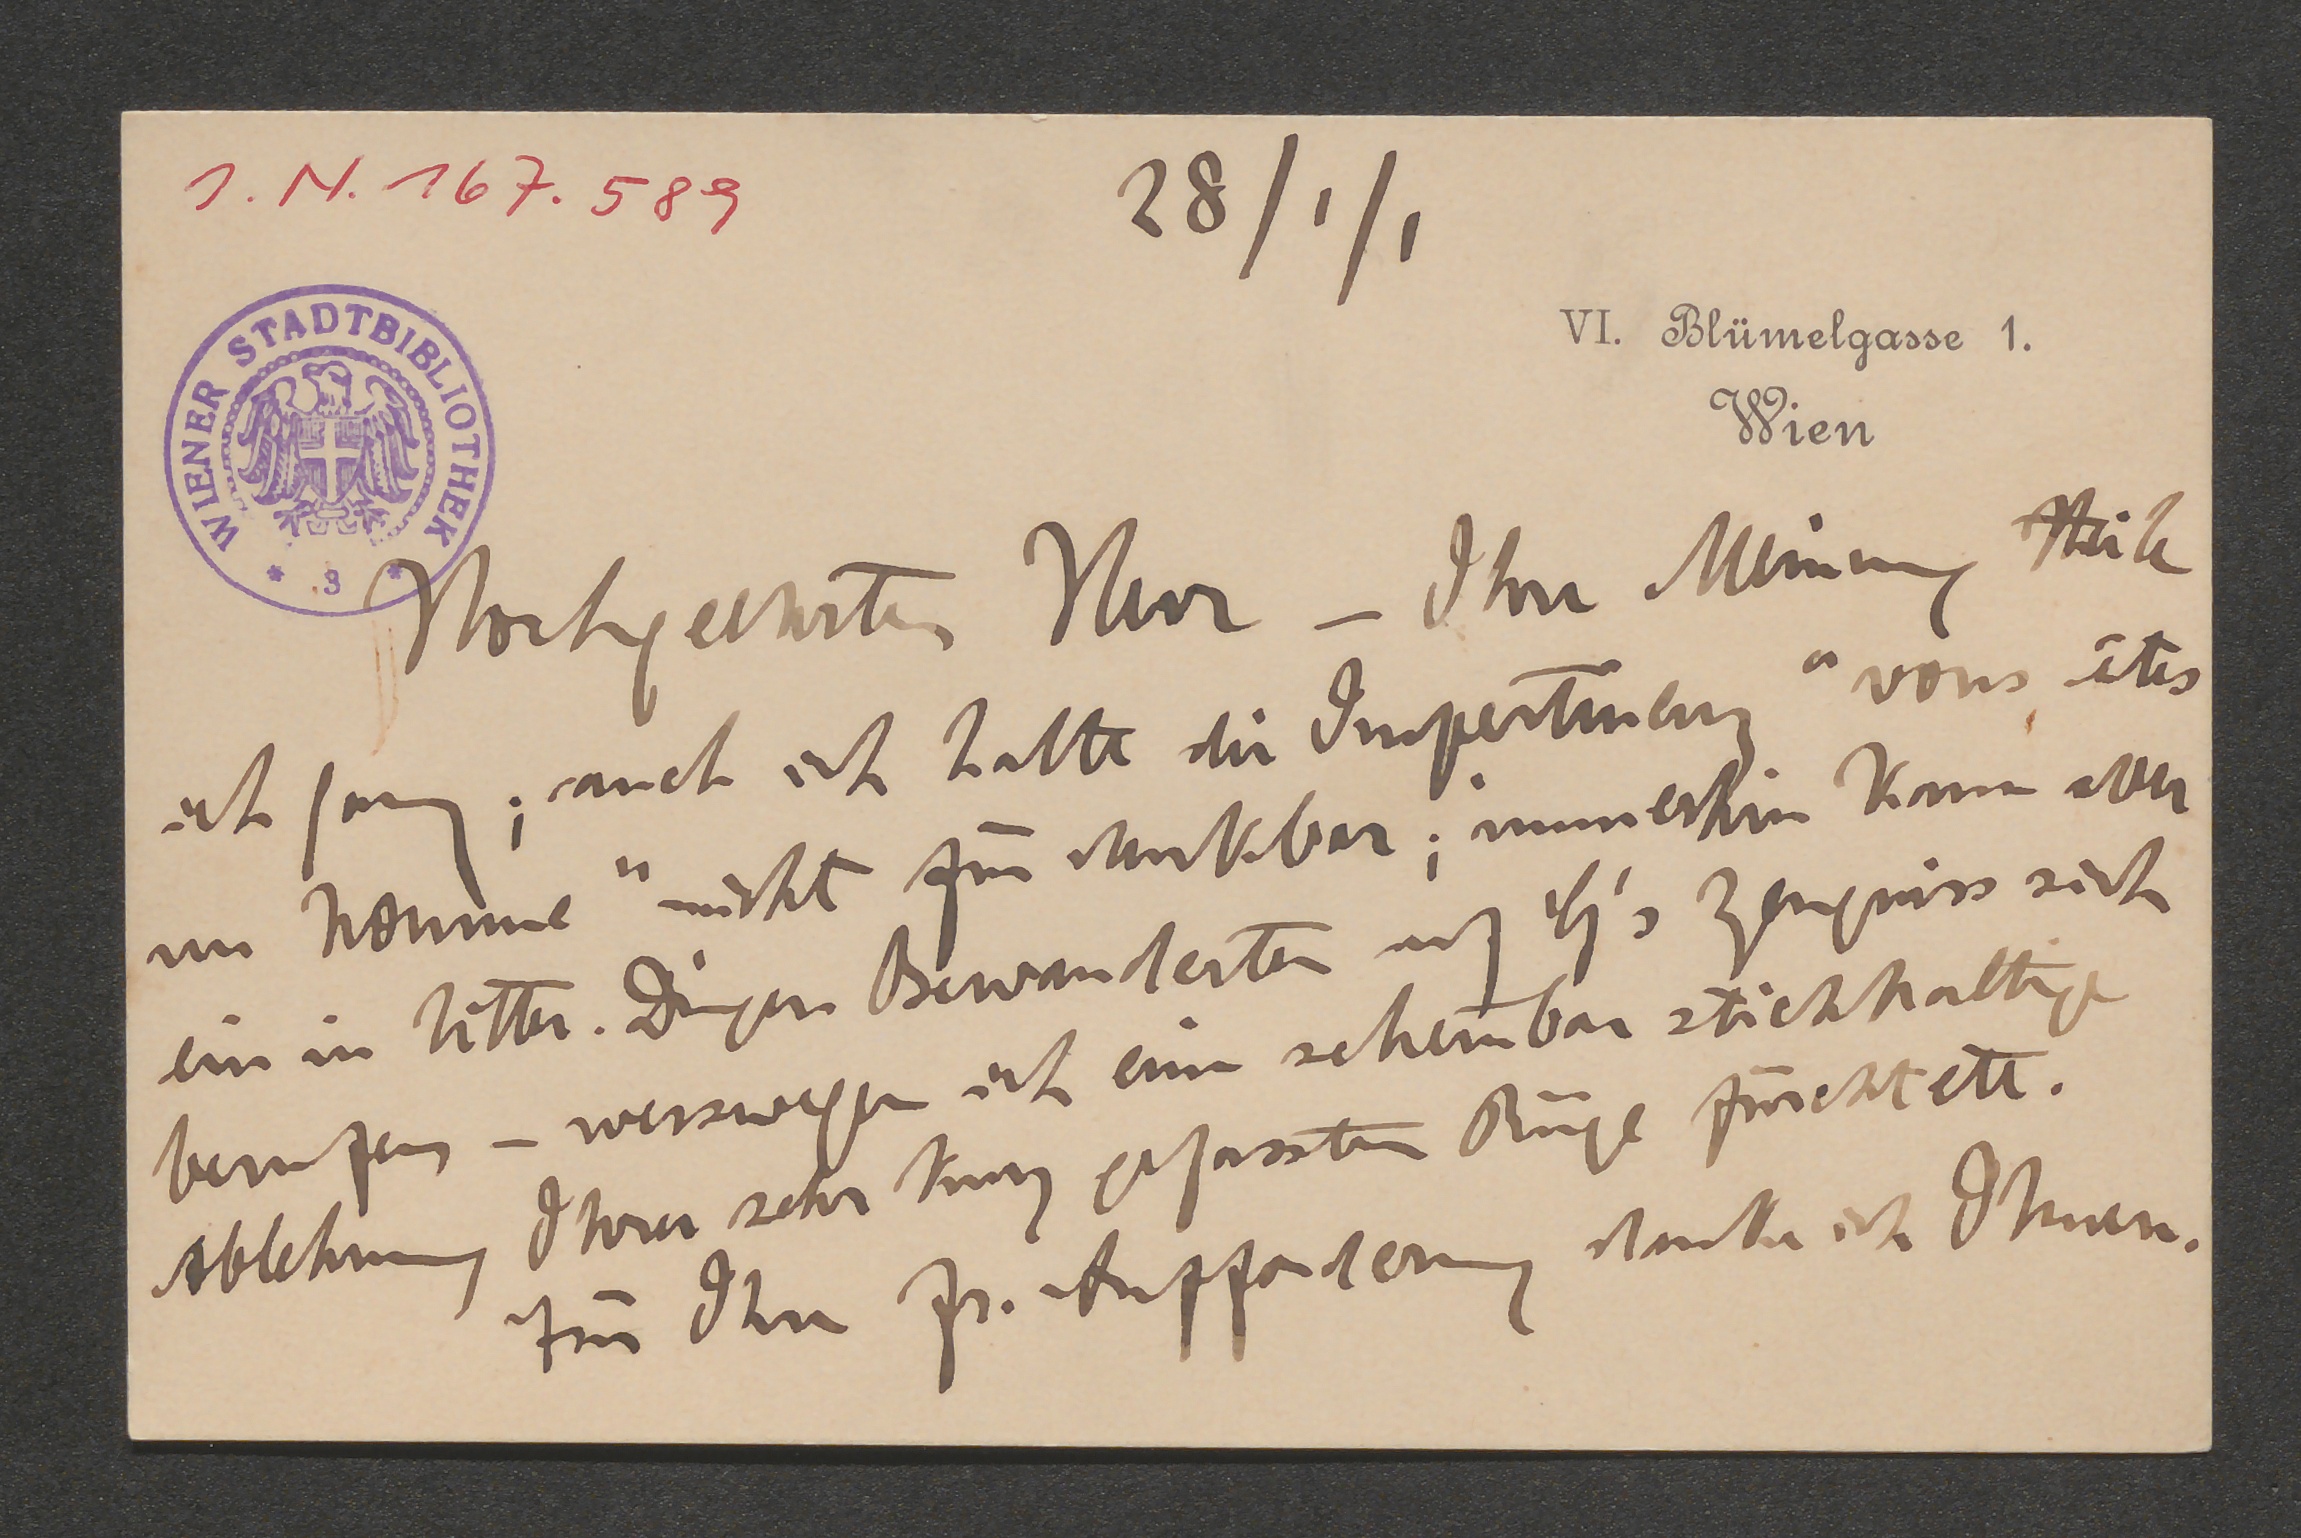 I. N. 167.589
28/1/1
VI. Blümelgasse 1.
Wien
WIENER STADTBIBLIOTHEK
* 3 *
Hochgeehrter Herr – Ihre Meinung theile
ich ganz; auch ich halte die Impertinenz "vous êtes
un homme" nicht für denkbar; immerhin kann aber
ein in litter. Dingen Bewanderter auf E's Zeugniss sich
berufen – wesswegen ich eine scheinbar stichhaltige
Ablehnung Ihrer sehr kurz gefassten Rüge fürchtete.
Für Ihre fr. Aufforderung danke ich Ihnen.